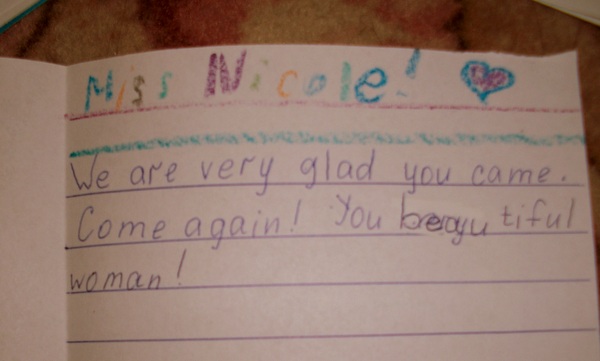 Miss Nicole!
We are very glad you came.
Come again! You beayutiful
woman!